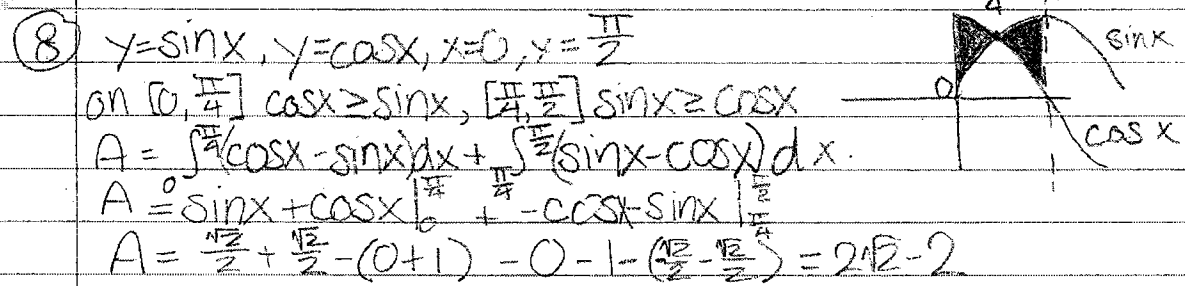 ⑧ y=sinx, y=cosx, x=0, x=π/2
on [0, π/4] cosx≥sinx, [π/4, π/2] sinx≥cosx
A = ∫₀^{π/4}(cosx-sinx)dx + ∫_{π/4}^{π/2}(sinx-cosx)dx.
A = sinx+cosx|₀^{π/4} + -cosx-sinx|_{π/4}^{π/2}
A = √2/2 + √2/2 -(0+1) -0-1-(-√2/2-√2/2) = 2√2-2
4
sinx
0
cosx